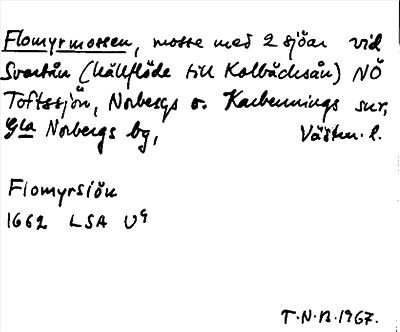 Flomyrmossen, mosse med 2 sjöar vid
Svartån (källflöde till Kolbäcksån) NÖ
Toftssjön, Norbergs o. Karbennings snr,
Gla Norbergs bg, Västm. l.
Flomyrsiön
1662 LSA U9
T.N.B. 1967.